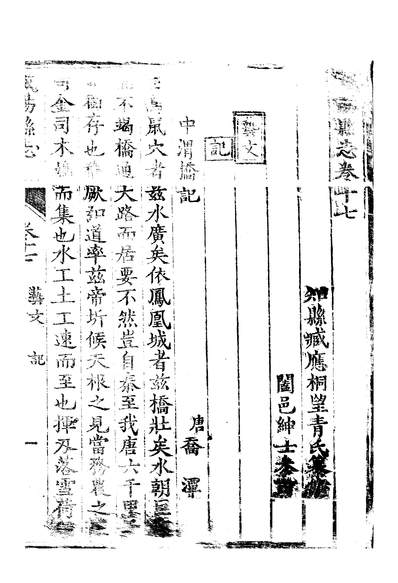 縣志卷十七
知縣臧應桐望青氏纂
闔邑紳士
藝文
記
中渭橋記
唐喬潭
鼠穴者茲水廣矣依鳳凰城者茲橋壯矣水朝
不竭橋通大路而居要不然豈自秦至我唐六千
存也 厥知道率茲帝圻候天根之見當務農之
金司木 而集也水工土工速而至也揮刃落雪荷
縣志
卷十七
藝文 記
一